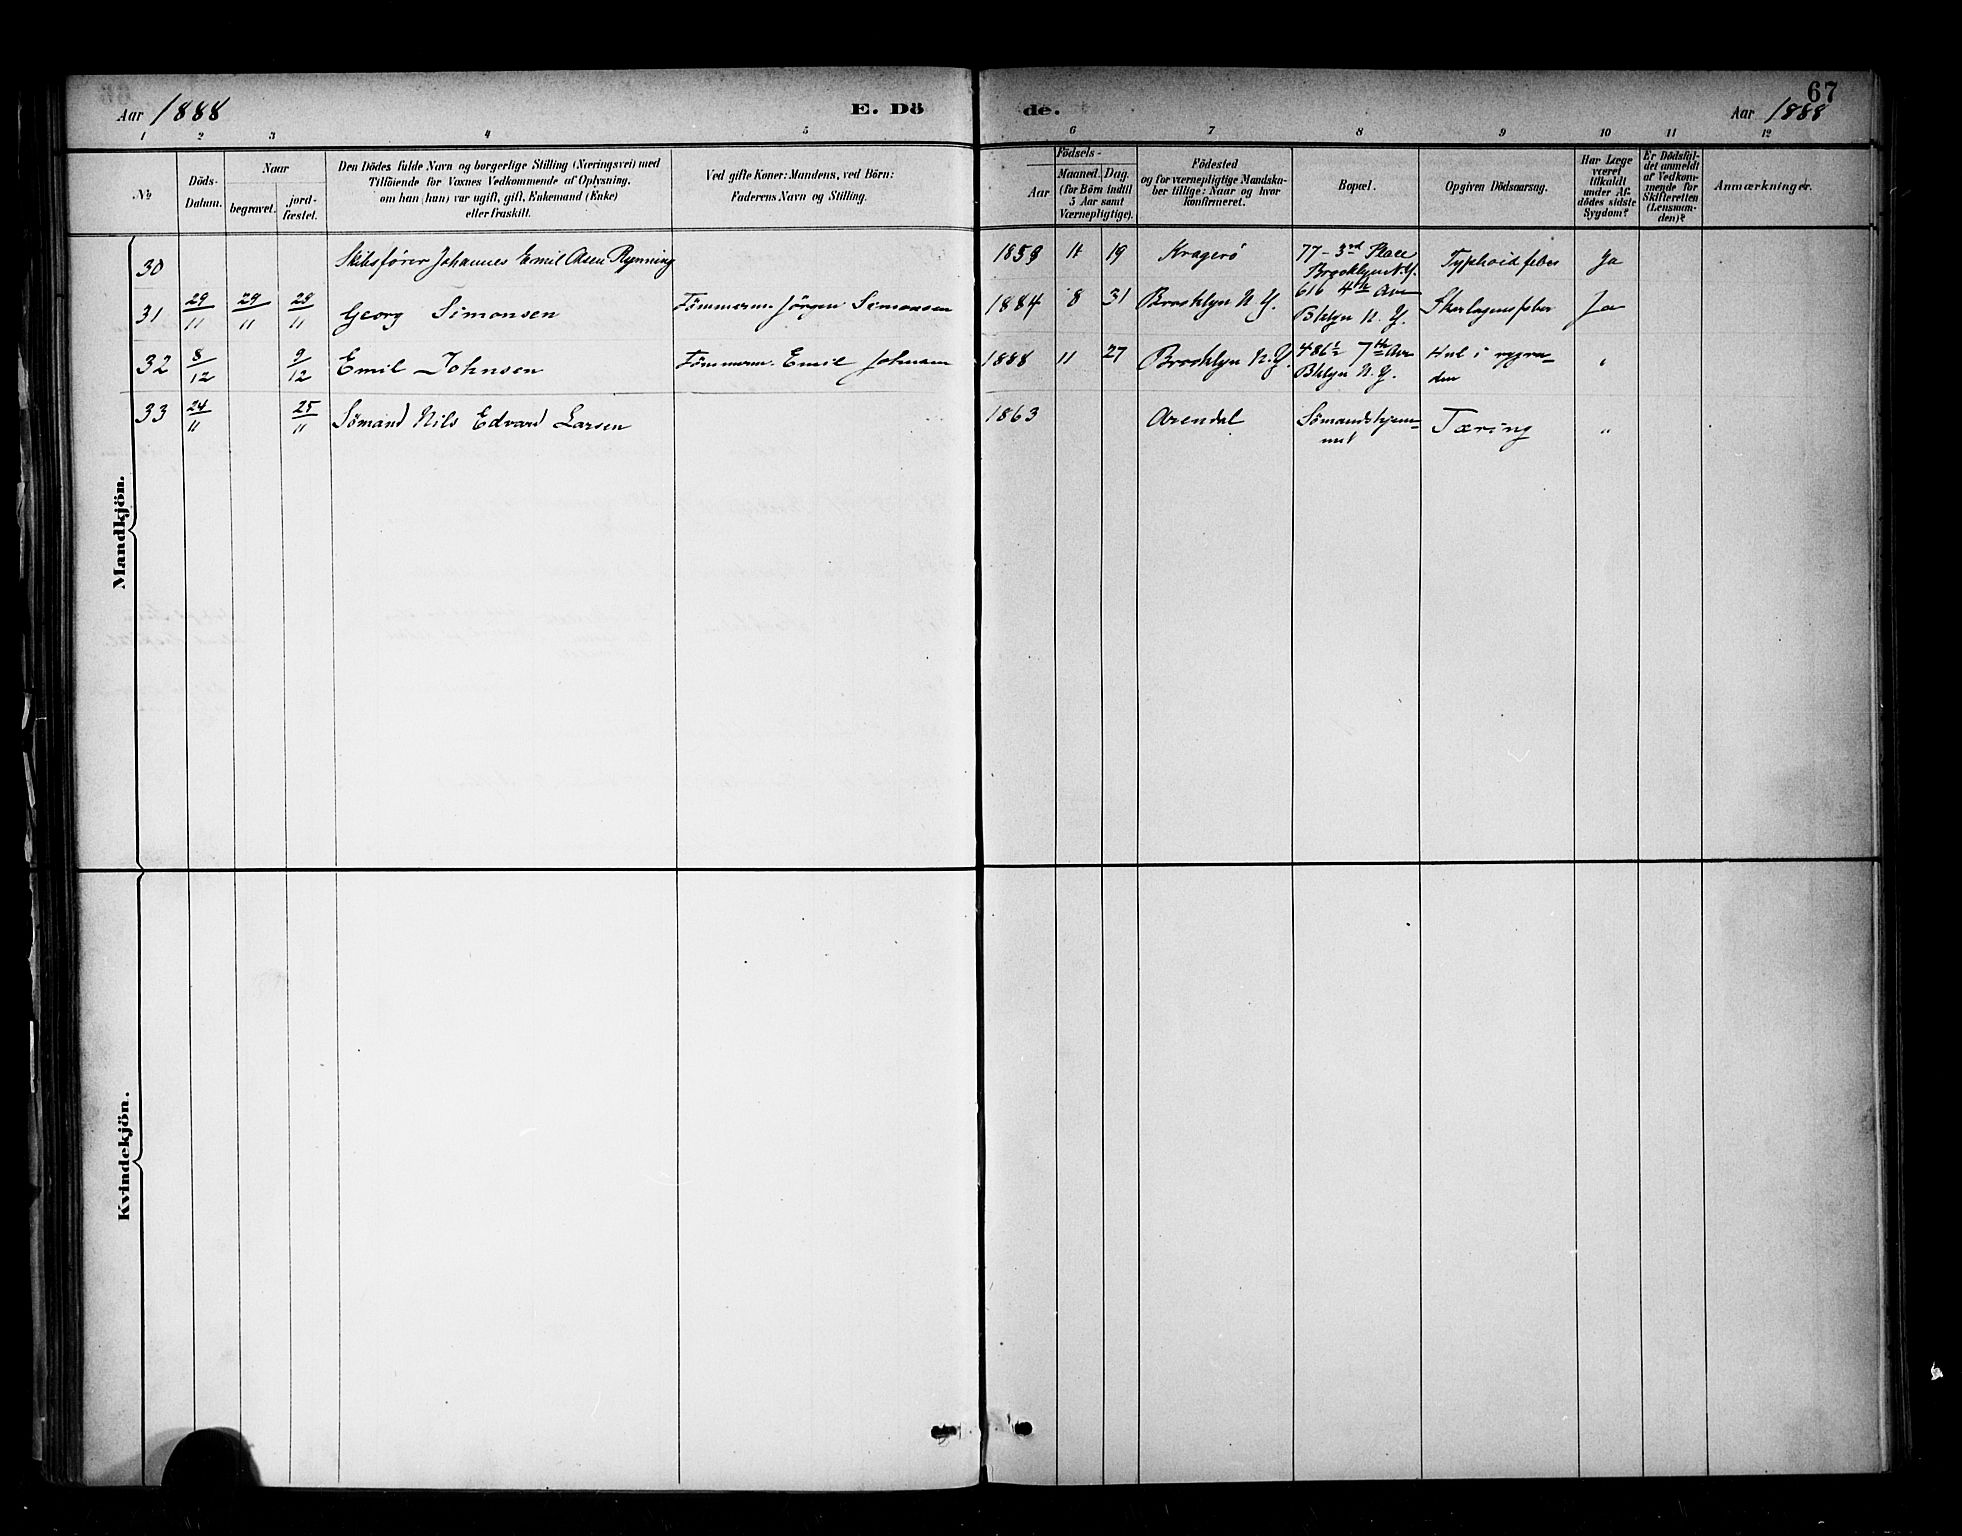 Aar 1888
E. Dö
de.
67
Aar 1888
1 2 3 4 5 6 7 8 9 10 11 12
No
Döds-
Datum.
Naar
begravet.
jord-
fæstet.
Den Dödes fulde Navn og borgerlige Stilling (Næringsvei) med
Tilföiende for Voxnes Vedkommende af Oplysning,
om han (hun) var ugift, gift, Enkemand (Enke)
eller fraskilt.
Ved gifte Koner: Mandens, ved Börn:
Faderens Navn og Stilling.
Födsels-
Aar
Maaned. Dag.
(for Börn indtil
5 Aar samt
Værnepligtige).
Födested
og for værnepligtige Mandska-
ber tillige: Naar og hvor
konfirmeret.
Bopæl.
Opgiven Dödsaarsag.
Har Læge
været
tilkaldt
under Af-
dödes sidste
Sygdom?
Er Dödsfal-
det anmeldt
af Vedkom-
mende for
Skifteretten
(Lensman-
den)?
Anmærkninger.
Mandkjön.
30 Skibsfører Johannes Emil Olsen Rynning 1859 11 19 Kragerö 77 - 3rd Place Brooklyn N.Y. Typhoid feber Ja
31 29/11 29/11 29/11 Georg Simonsen Tömmerm. Jörgen Simonsen 1884 8 31 Brooklyn N.Y. 616 4th Ave Bklyn N.Y. Skarlagensfeber Ja
32 8/12 9/12 Emil Johnsen Tömmerm. Emil Johnsen 1888 11 27 Brooklyn N.Y. 486½ 7th Ave Bklyn N.Y. Hul i rygraden "
33 24/11 25/11 Sömand Nils Edvard Larsen 1863 Arendal Sömandshjemmet Tæring "
Kvindekjön.